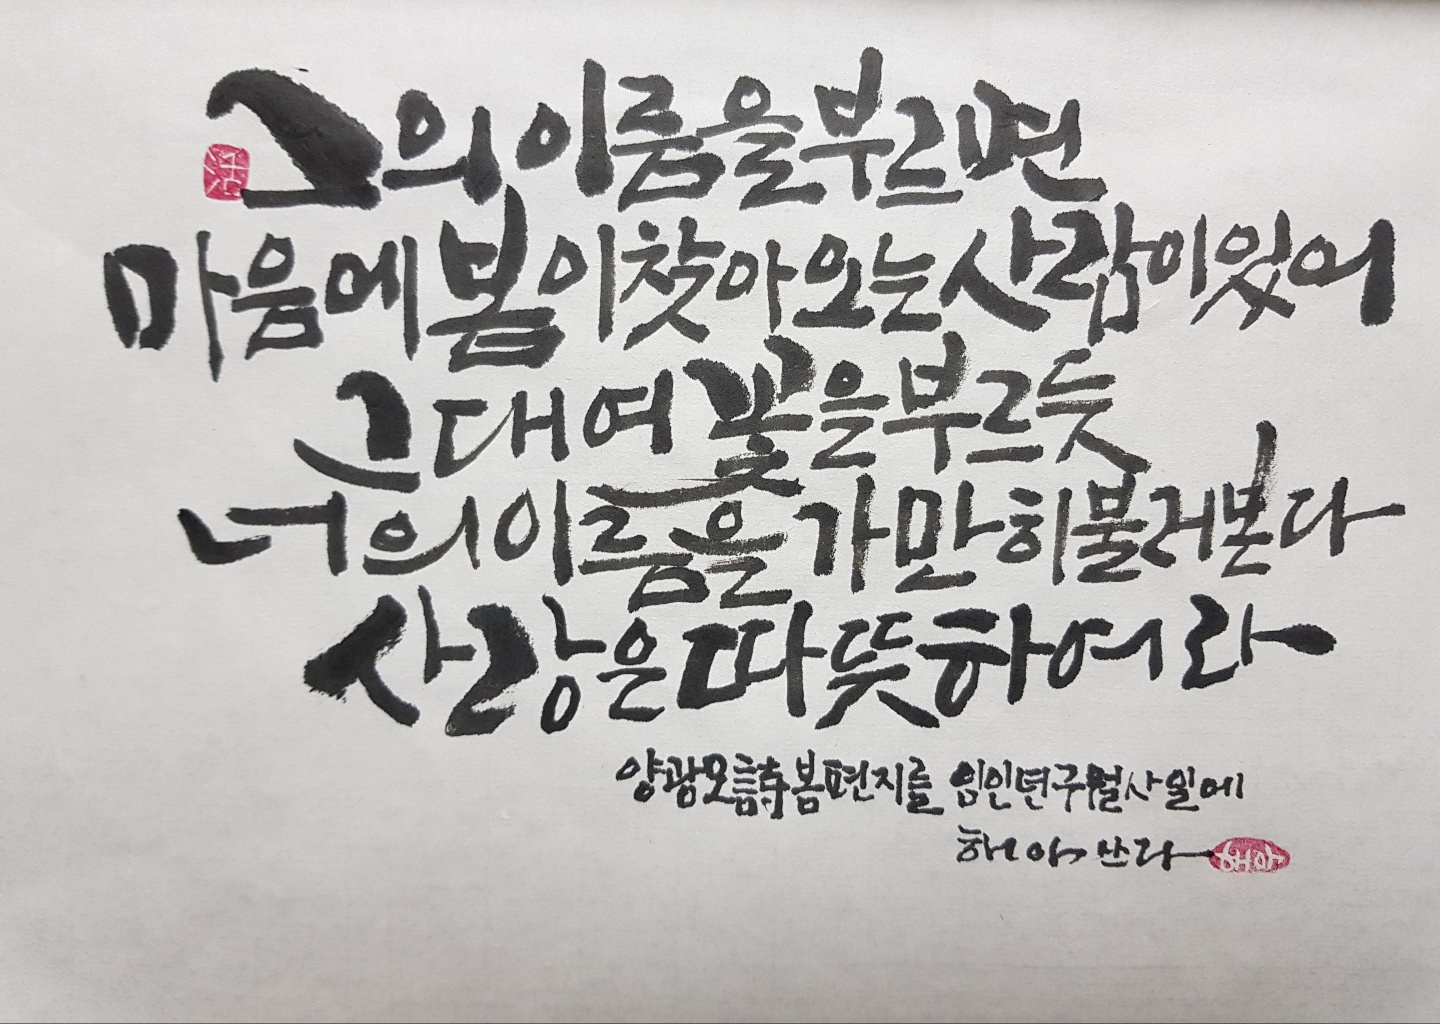 그의 이름을 부르면
마음에 봄이 찾아오는 사람이 있어
그대여 꽃을 부르듯
너의 이름을 가만히 불러본다
사랑은 따뜻하여라
양광모 詩 봄편지를 임인년 구월 사일에
해아 쓰다
해아